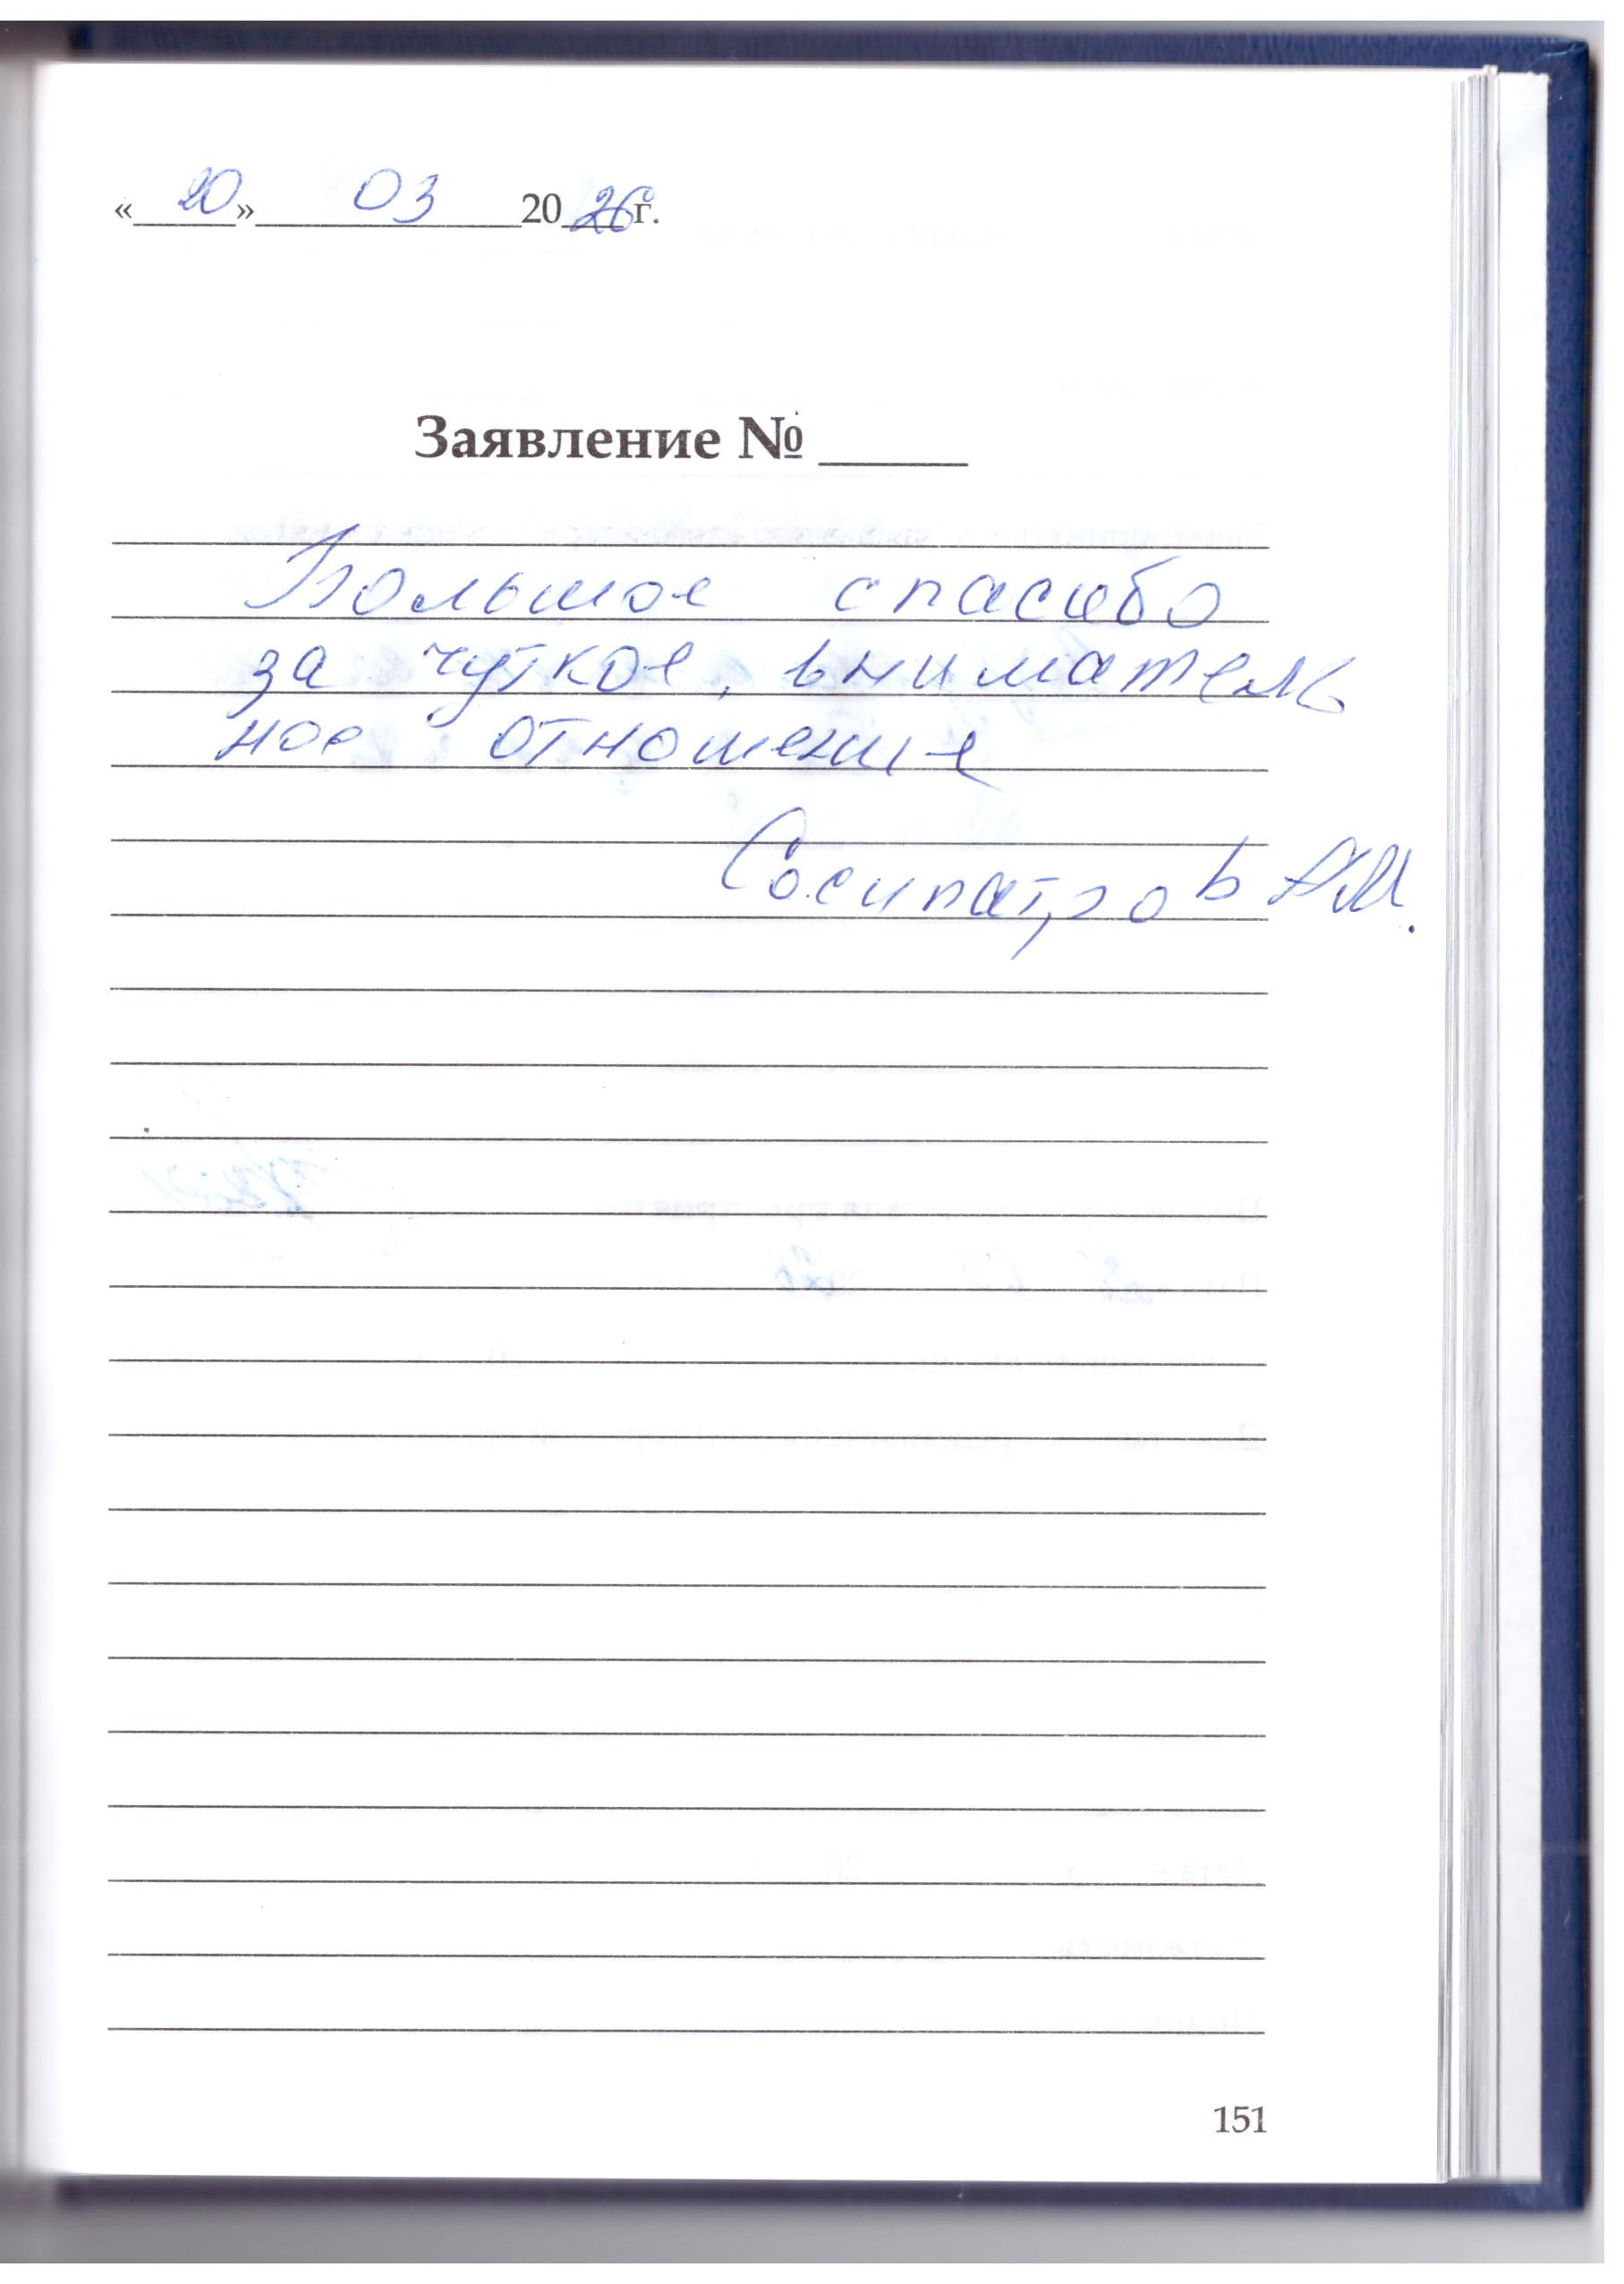 «20» 03 2026г.
Заявление № _____
Большое спасибо
за чуткое, вниматель
ное отношение
Сосипатров А.М.
151